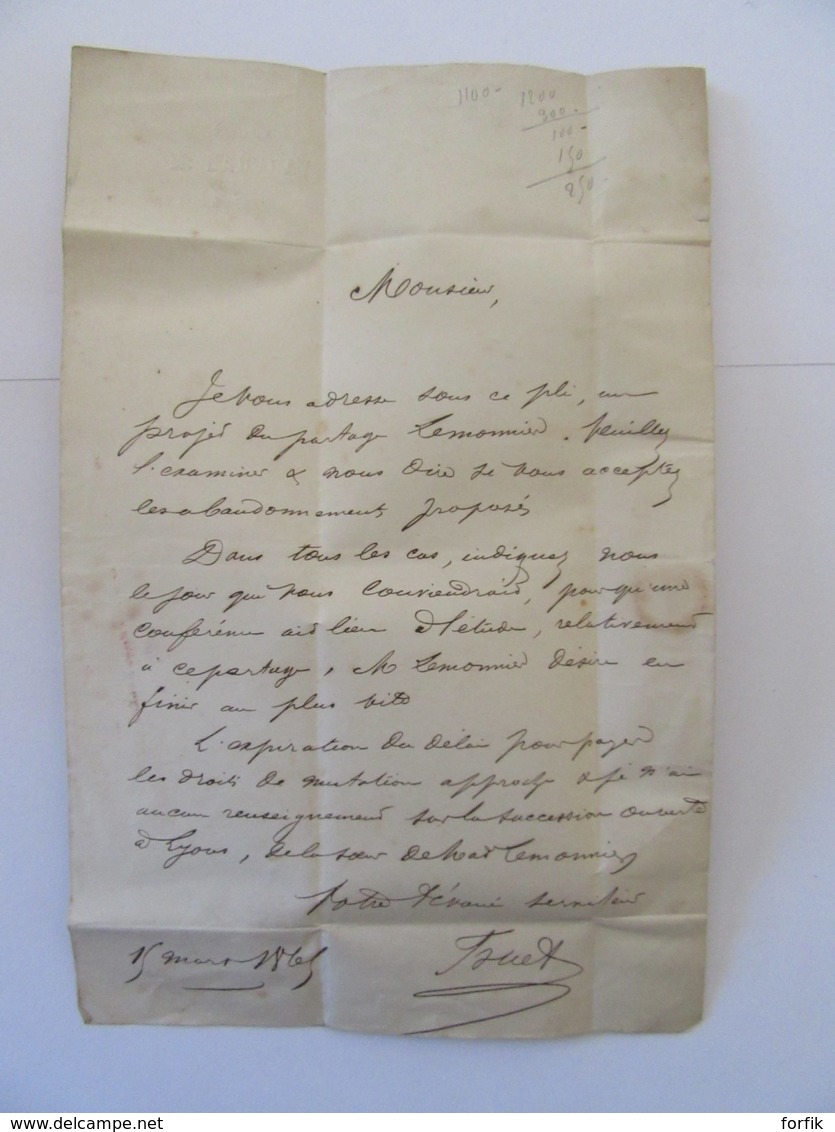 1100- 1200
900-
100-
150
250-
Monsieur,
Je vous adresse sous ce pli, un
projet du partage Lemonnier. Veuillez
l'examiner & nous dire si vous acceptez
les abandonnements proposés
Dans tous les cas, indiquez nous
le jour qui vous conviendrait, pour qu'une
conférence ait lieu à l'étude, relativement
à ce partage, M Lemonnier désire en
finir au plus vite
L'expiration du délai pour payer
les droits de mutation approche & je n'ai
aucun renseignement sur la succession ouverte
à Lyons, de la sœur de Mad Lemonnier
Votre dévoué serviteur
15 mars 1865
www.delcampe.net
forfik